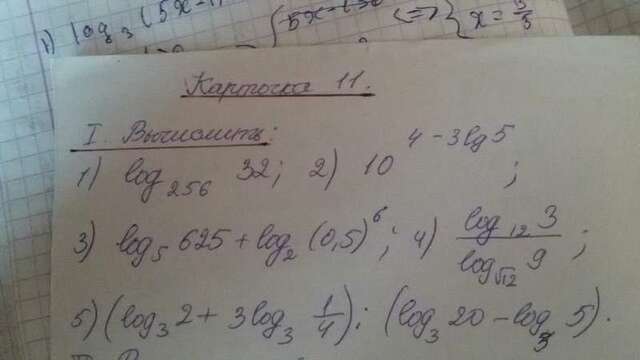 1) log₃(5x-1
x = 3/5
Карточка 11.
I. Вычислить:
1) log₂₅₆ 32; 2) 10^(4-3lg5);
3) log₅ 625 + log₂ (0,5)⁶; 4) log₁₂ 3 / log_√12 9;
5) (log₃ 2 + 3log₃ 1/4); (log₃ 20 - log₃ 5).